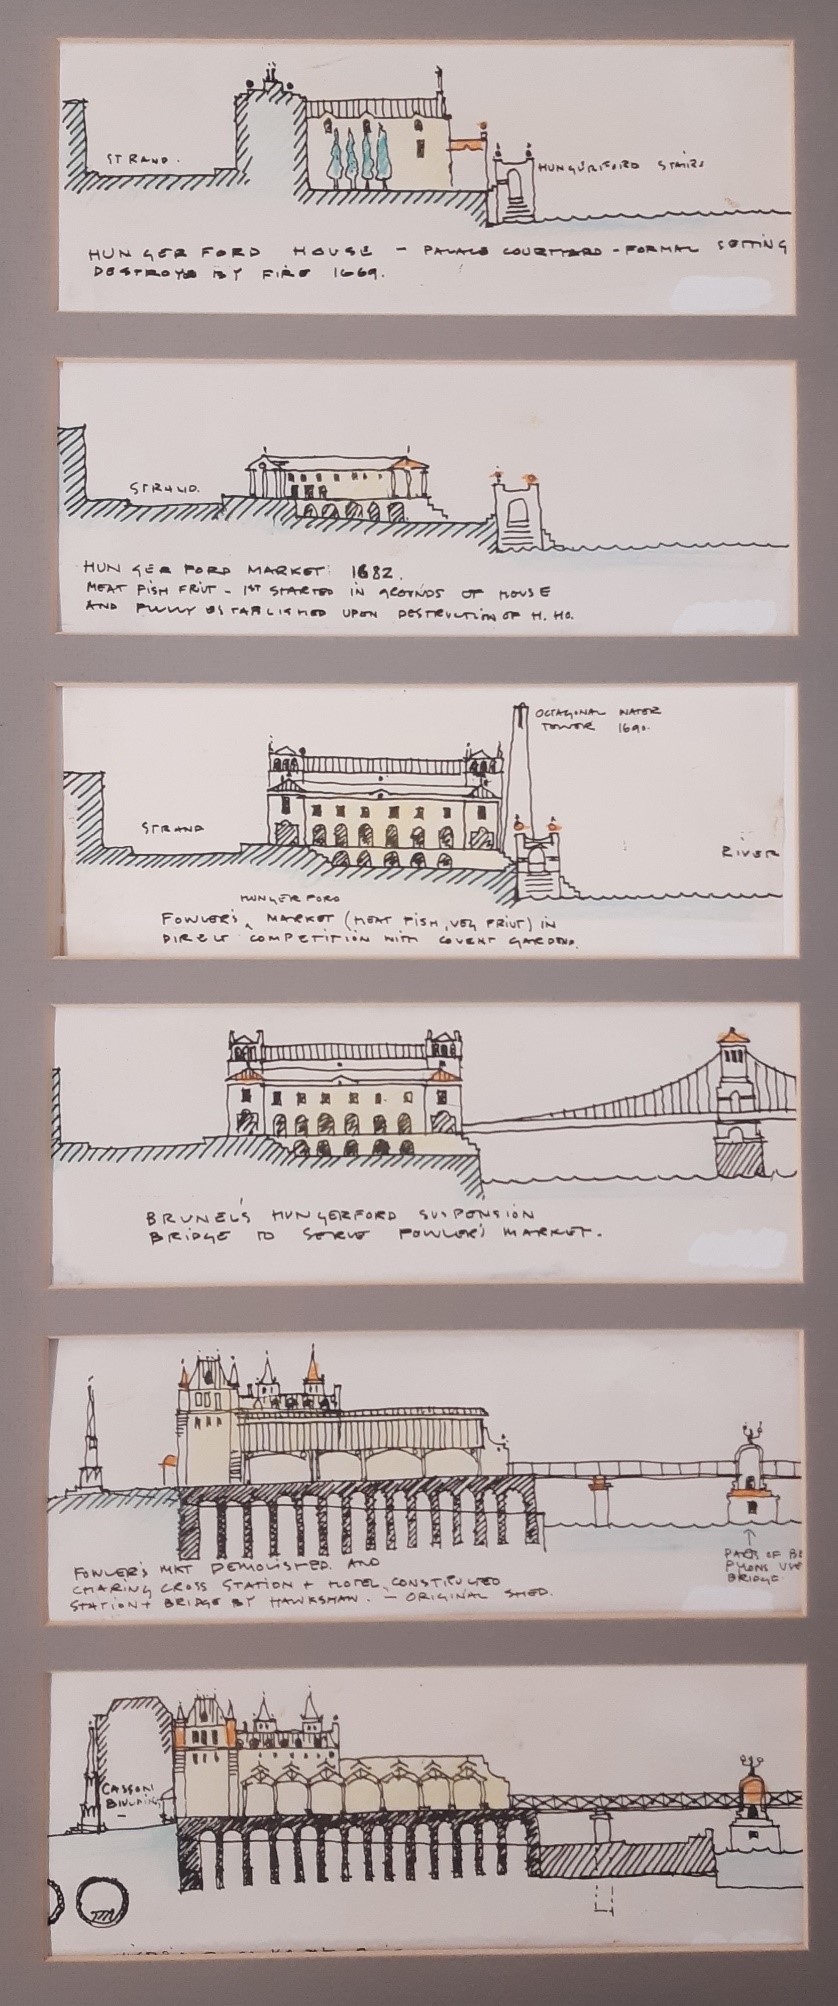 STRAND.
HUNGERFORD STAIRS
HUNGERFORD HOUSE - PALACE COURTYARD - FORMAL SETTING
DESTROYD BY FIRE 1669.
STRAND.
HUNGERFORD MARKET: 1682.
MEAT FISH FRIUT - 1ST STARTED IN GROUNDS OF HOUSE
AND FULLY ESTABLISHED UPON DESTRUCTION OF H. HO.
OCTAGONAL WATER
TOWER 1690.
STRAND
RIVER
HUNGERFORD
FOWLER'S MARKET (MEAT FISH, VEG FRIUT) IN
DIRECT COMPETITION WITH COVENT GARDEN.
BRUNEL'S HUNGERFORD SUSPENSION
BRIDGE TO SERVE FOWLER'S MARKET.
PARTS OF
PYLONS
BRIDGE
FOWLER'S MKT DEMOLISHED. AND
CHARING CROSS STATION + HOTEL, CONSTRUCTED
STATION + BRIDGE BY HAWKSHAW. - ORIGINAL SHED.